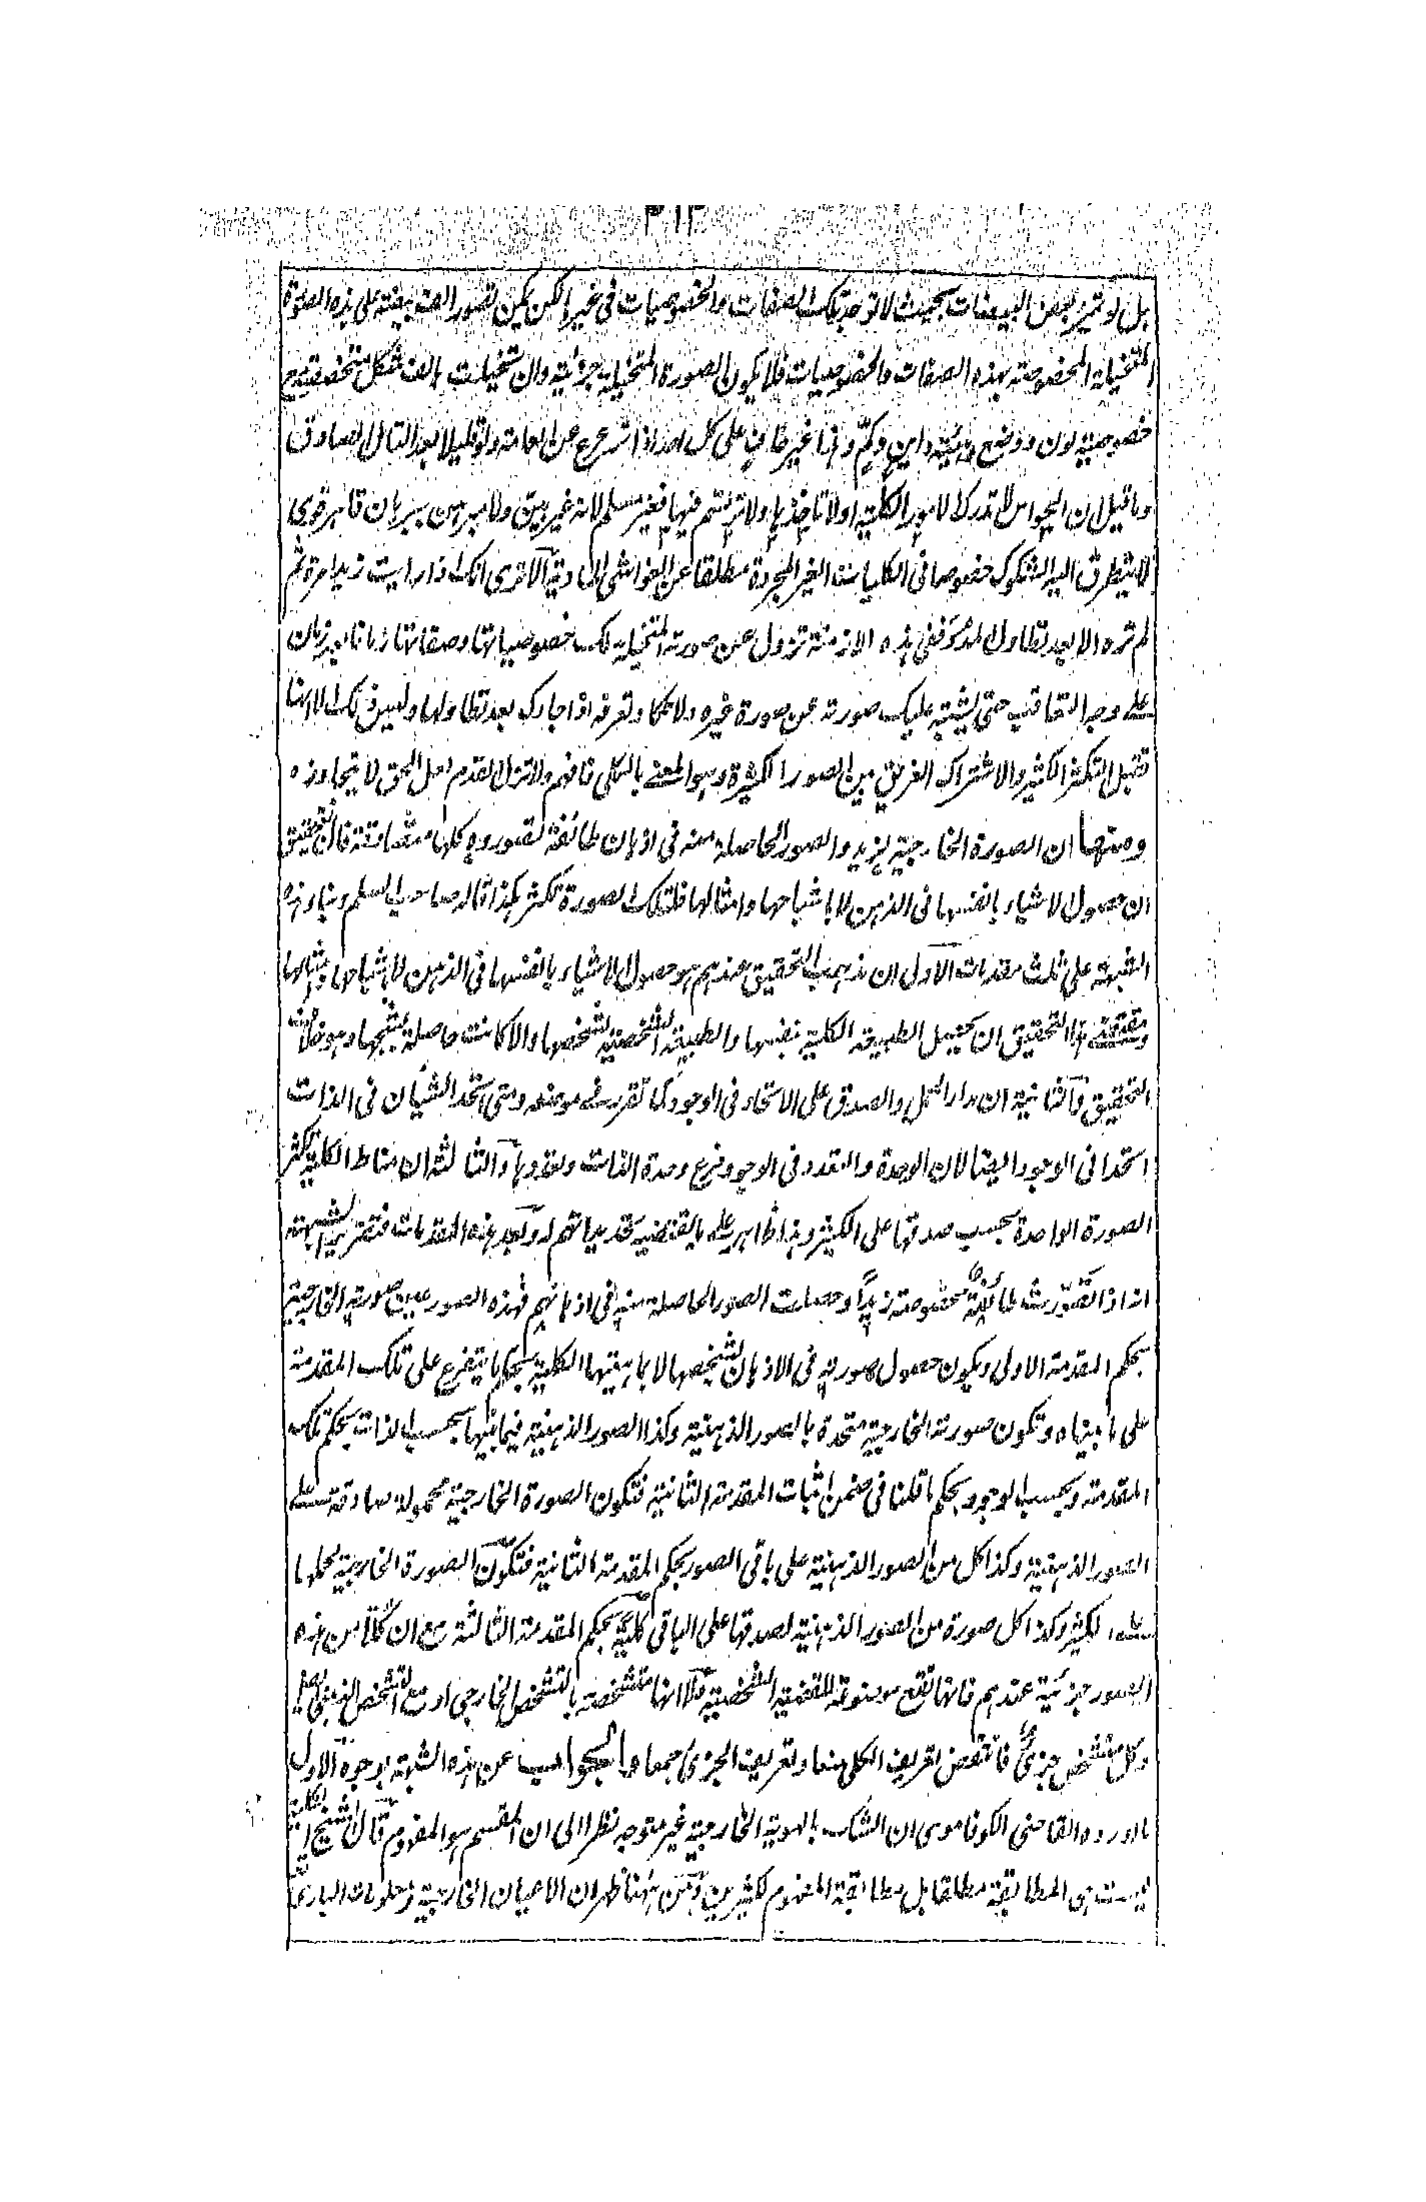 بل لو تميز بعض البيضات بحيث لا توجد تلك الصفات والخصوصيات فى غيرها لكن يمكن تصور الف بيضة على هذه الصورة
المتخيلة المخصوصة بهذه الصفات والخصوصيات فلا يكون الصورة المتخيلة جزئية وان تخيلت بالف شكل
خصوصية لون ووضع وهيئة واين وكم وهذا غير خاف على كل احد اذا ترعرع عن العامة ولو قليلا بعد التامل الصادق
وما قيل ان الحواس لا تدرك الامور الكلية او لا تاخذها ولا ترتسم فيها فغير مسلم لانه غير بين ولا مبرهن ببرهان قاهر قوى
لا يتطرق اليه الشكوك خصوصا فى الكليات الغير المجردة مطلقا عن الغواشى المادية الا ترى انك اذا رايت زيدا مرة ثم
لم تره الا بعد تطاول المدد ففى هذه الازمنة تزول عن صورته المتخيلة لك خصوصياتها وصفاتها زمانا بعد زمان
على وجه التعاقب حتى يشتبه عليك صورته عن صورة غيره ولا تكاد تعرفه اذا جاءك بعد تطاولها وليس ذلك الا لانها
تقبل التكثر الكثير والاشتراك الغريق بين الصور الكثيرة وهو المعنى بالكلى فافهم ولا تزل القدم اهل الحق لا يتجاوزه
ومنها ان الصورة الخارجية لزيد والصور الحاصلة منه فى اذهان طائفة تصوروه كلها متصادقة فان التحقيق
ان حصول الاشياء بانفسها فى الذهن لا باشباحها وامثالها فتلك الصورة تكثر هكذا قال صاحب السلم وبناء هذه
الشبهة على ثلث مقدمات الاول ان مذهب التحقيق عندهم هو حصول الاشياء بانفسها فى الذهن لا باشباحها وامثالها
ومقتضى هذا التحقيق ان تحصل الطبيعة الكلية بنفسها والطبيعة الشخصية بشخصها والا كانت حاصلة بشبحها وهو خلاف
التحقيق والثانية ان مدار الحمل والصدق على الاتحاد فى الوجود كما تقرر فى موضعه ومتى اتحد الشيئان فى الذات
اتحدا فى الوجود ايضا لان الوحدة والتعدد فى الوجود فرع وحدة الذات وتعددها والثالثة ان مناط الكلية تكثر
الصورة الواحدة بحسب صدقها على الكثير وهذا ظاهر على ما يقتضيه تحديداتهم له وبعد هذه المقدمات فتقرير الشبهة
انه اذا تصورت طائفة مخصوصة زيدا وحصلت الصور الحاصلة منه فى اذهانهم فهذه الصور عين صورته الخارجية
بحكم المقدمة الاولى ويكون حصول صورته فى الاذهان بشخصها لا بماهيتها الكلية بحكم ما يتفرع على تلك المقدمة
على ما بيناه وتكون صورته الخارجية متحدة بالصور الذهنية وكذا الصور الذهنية فيما بينها بحسب الذات بحكم تلك
المقدمة وبحسب الوجود بحكم ما قلنا فى ضمن اثبات المقدمة الثانية فتكون الصورة الخارجية محمولة صادقة على
الصور الذهنية وكذا كل من الصور الذهنية على باقى الصور بحكم المقدمة الثانية فتكون الصورة الخارجية بحملها
على الكثير وكذا كل صورة من الصور الذهنية لصدقها على الباقى كلية بحكم المقدمة الثالثة مع ان كلا من هذه
الصور جزئية عندهم فانها تقع موضوعة للقضية الشخصية ولانها متشخصة بالتشخص الخارجى او مع التشخص الذهنى
وكل متشخص جزئى فانتقض تعريف الكلى منعا وتعريف الجزئى جمعا والجواب عن هذه الشبهة بوجوه الاول
ما اورده القاضى الكوفاموى ان الشك بالهوية الخارجية غير متوجه نظرا الى ان المقسم هو المفهوم قال الشيخ الكلية
ليست هى المطابقة مطلقا بل مطابقة المفهوم لكثيرين ومن ههنا ظهر ان الاعيان الخارجية ومعلومات البارى